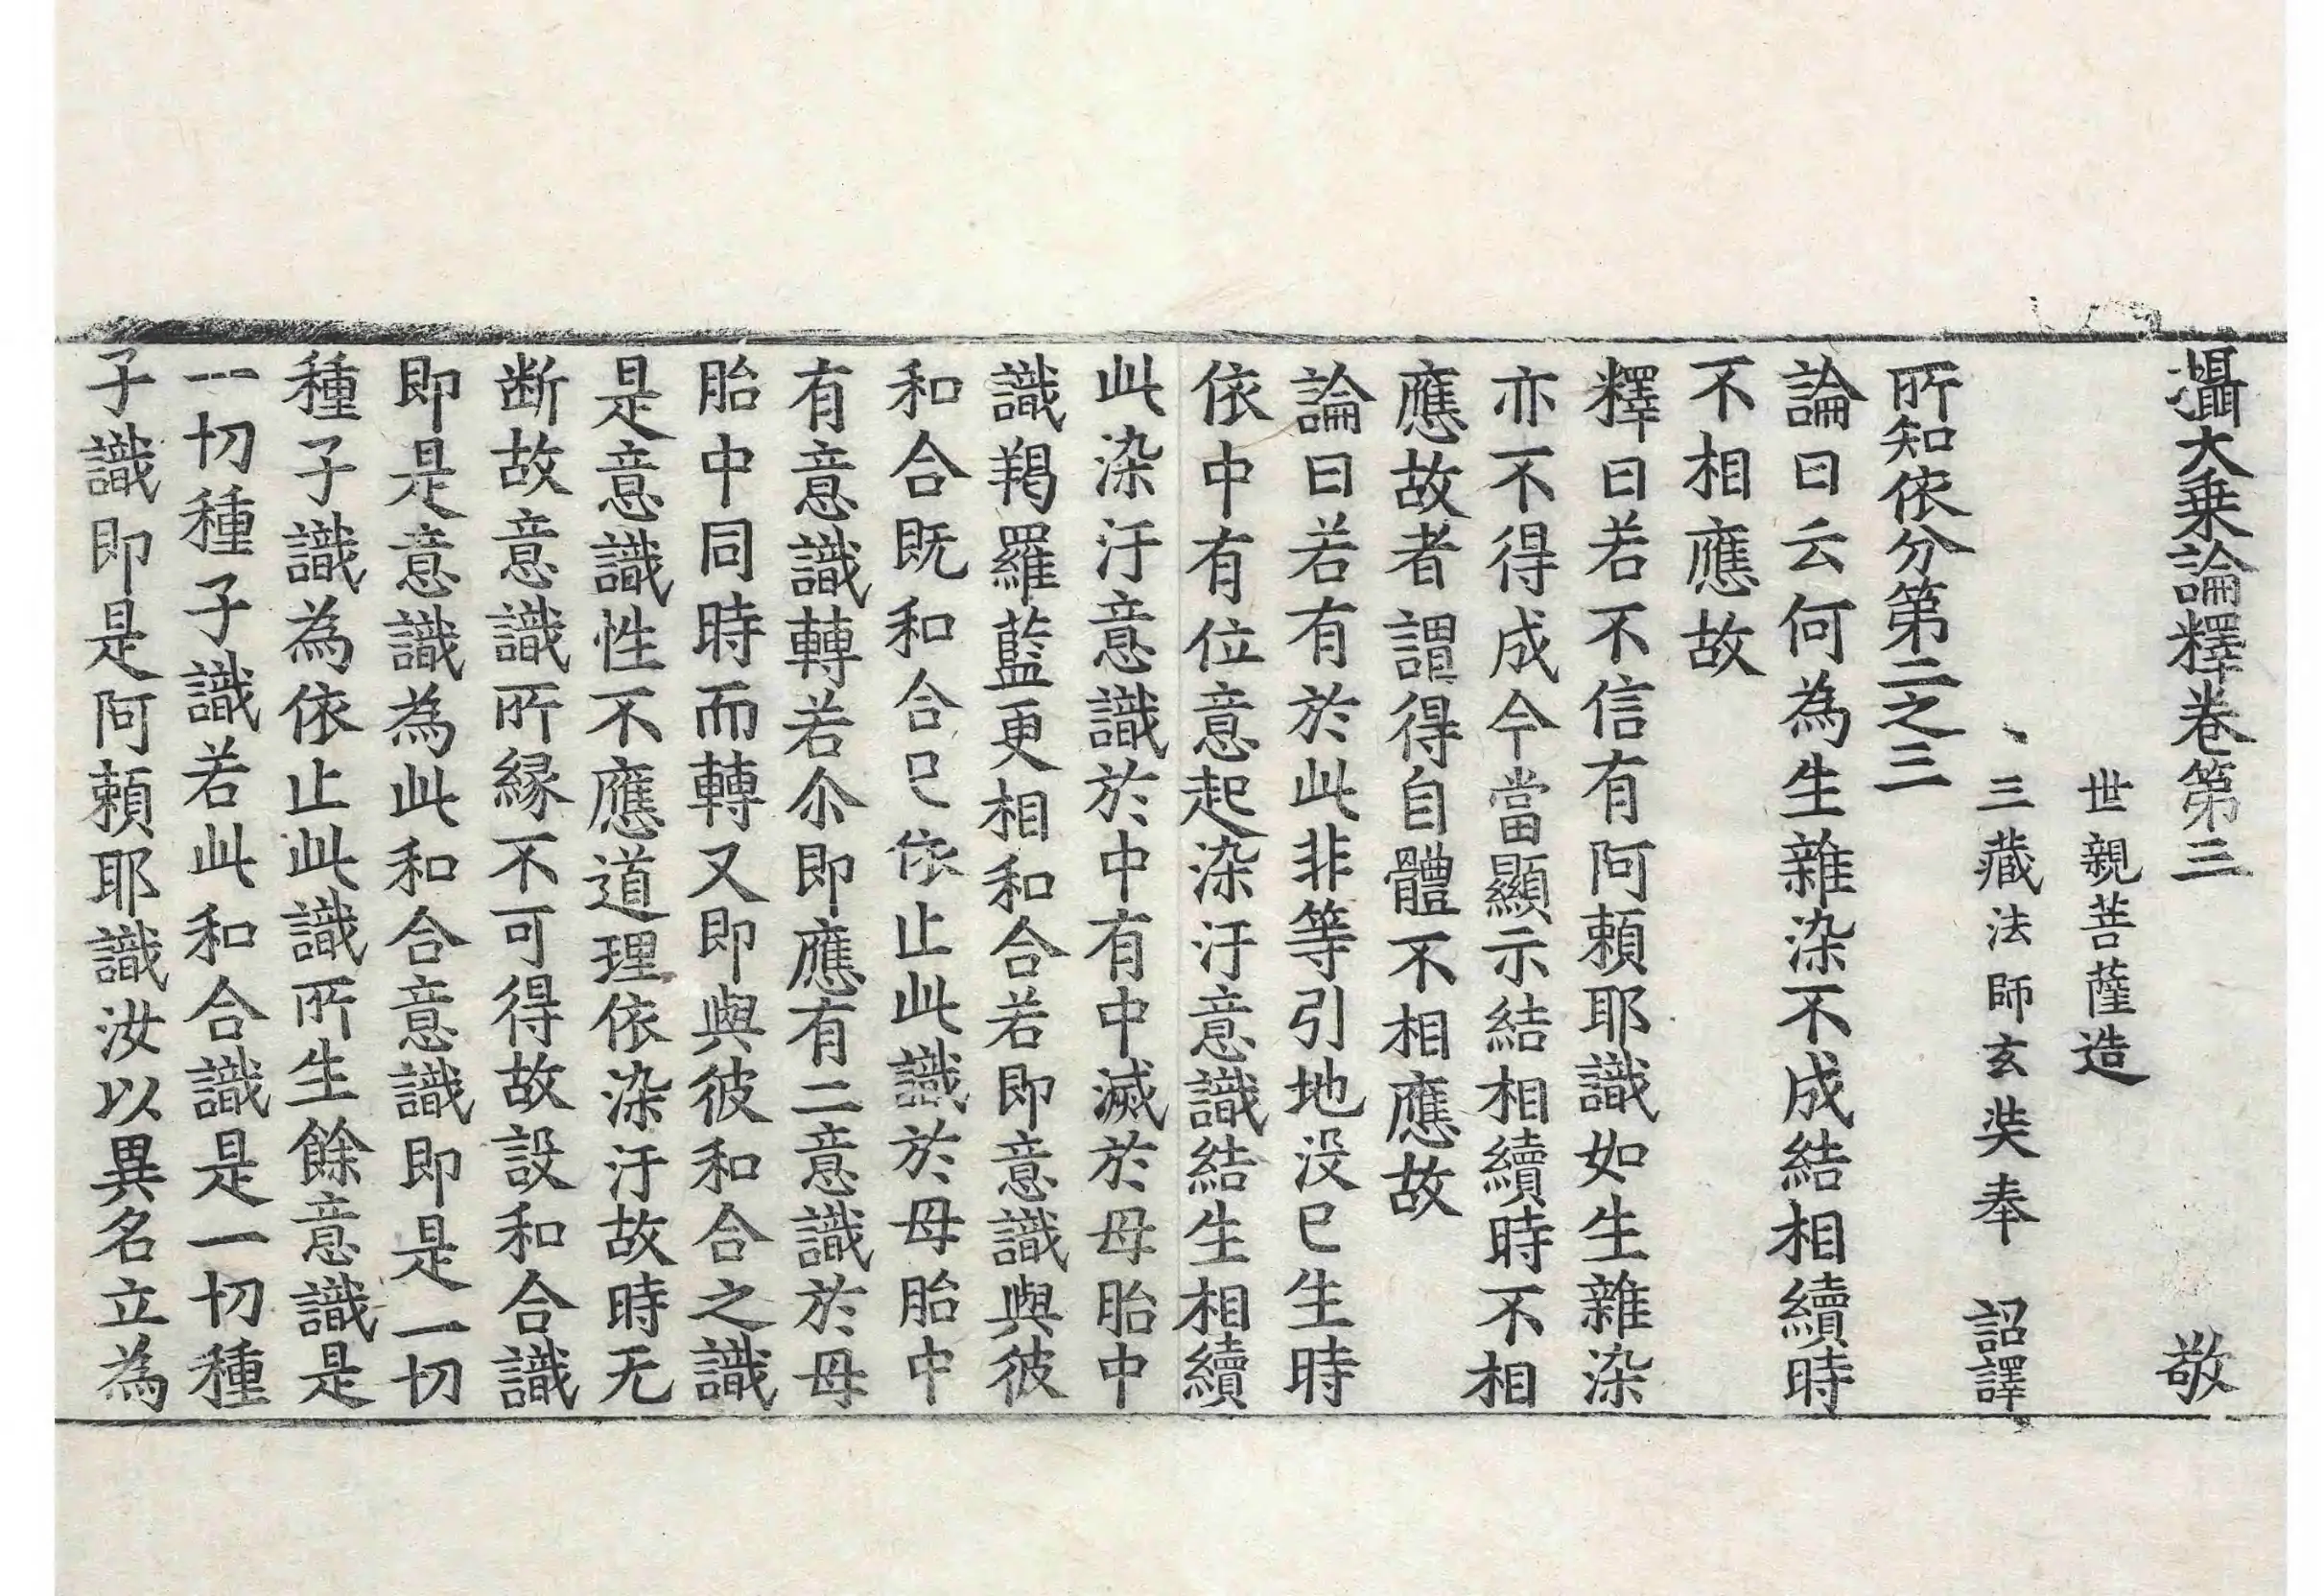 攝大乗論釋卷第三　敬
世親菩薩造
三藏法師玄奘奉　詔譯
所知依分第二之三
論曰云何為生雜染不成結相續時
不相應故
釋曰若不信有阿頼耶識如生雜染
亦不得成今當顯示結相續時不相
應故者謂得自體不相應故
論曰若有於此非等引地没巳生時
依中有位意起染汙意識結生相續
此染汙意識於中有中滅於母胎中
識羯羅藍更相和合若即意識與彼
和合既和合巳依止此識於母胎中
有意識轉若尒即應有二意識於母
胎中同時而轉又即與彼和合之識
是意識性不應道理依染汙故時无
断故意識所縁不可得故設和合識
即是意識為此和合意識即是一切
種子識為依止此識所生餘意識是
一切種子識若此和合識是一切種
子識即是阿頼耶識汝以異名立為